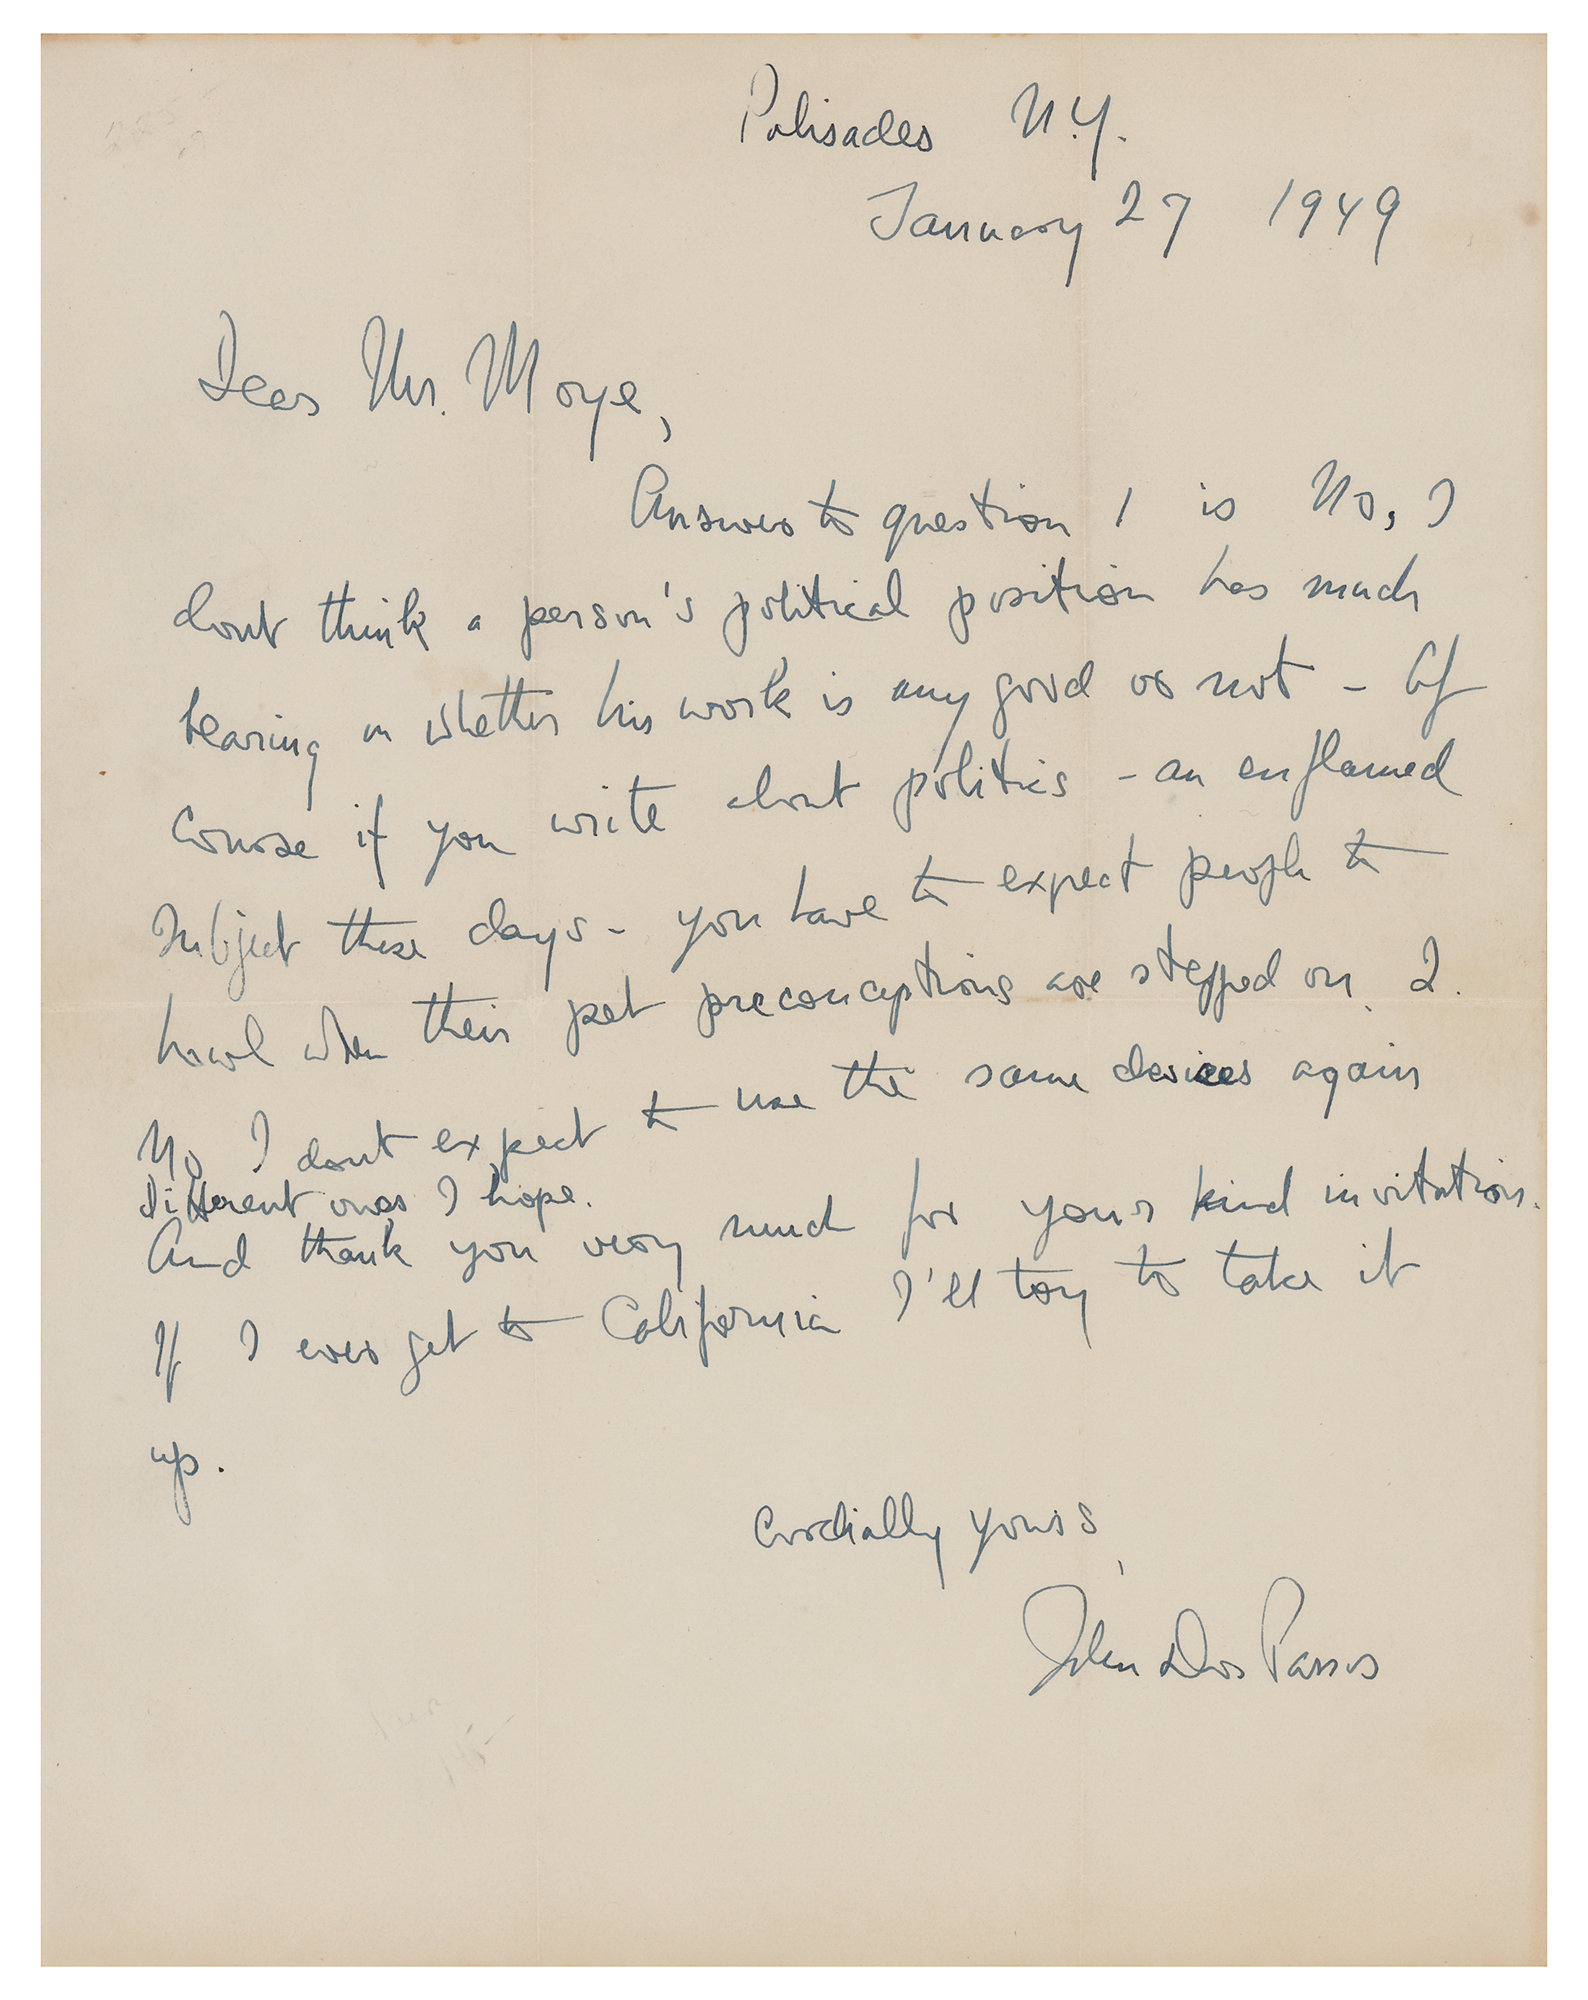 Palisades N.Y.
January 27 1949
Dear Mr. Moye,
Answer to question 1 is No, I
dont think a person's political position has much
bearing on whether his work is any good or not - Of
course if you write about politics - an enflamed
subject these days - you have to expect people to
howl when their pet preconceptions are stepped on. 2.
No I dont expect to use the same devices again
Different ones I hope.
And thank you very much for your kind invitation.
If I ever get to California I'll try to take it
up.
Cordially yours,
John Dos Passos